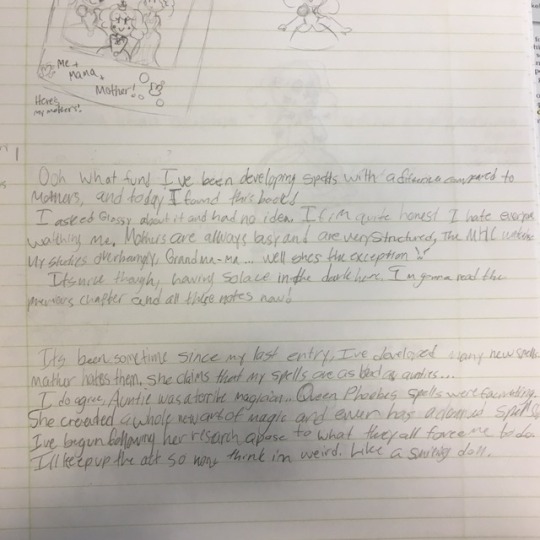 Me +
Mama,
Mother!
Here's
my mothers!
Ooh what fun! I've been developing spells with a difference compared to
Mothers, and today I found this book!
I asked Glossy about it and had no idea. If i'm quite honest I hate everyone
watching me. Mothers are allways busy and are very structured, The MHC
my studies Grandma-ma... well shes the exception
Its nice though, having solace in the dark here. I'm gonna read the
previous chapter and all these notes now!
Its been sometime since my last entry, I've developed many new spells
mother hates them. She claims that my spells are as bad as aunties...
I do agree, Auntie was a terible magician.. Queen Phoebes spells were
She created a whole new art of magic and even has a spell
I've begun following her research apose to what they all force me to do.
I'll keep up the act so none think im weird. Like a smiling doll.